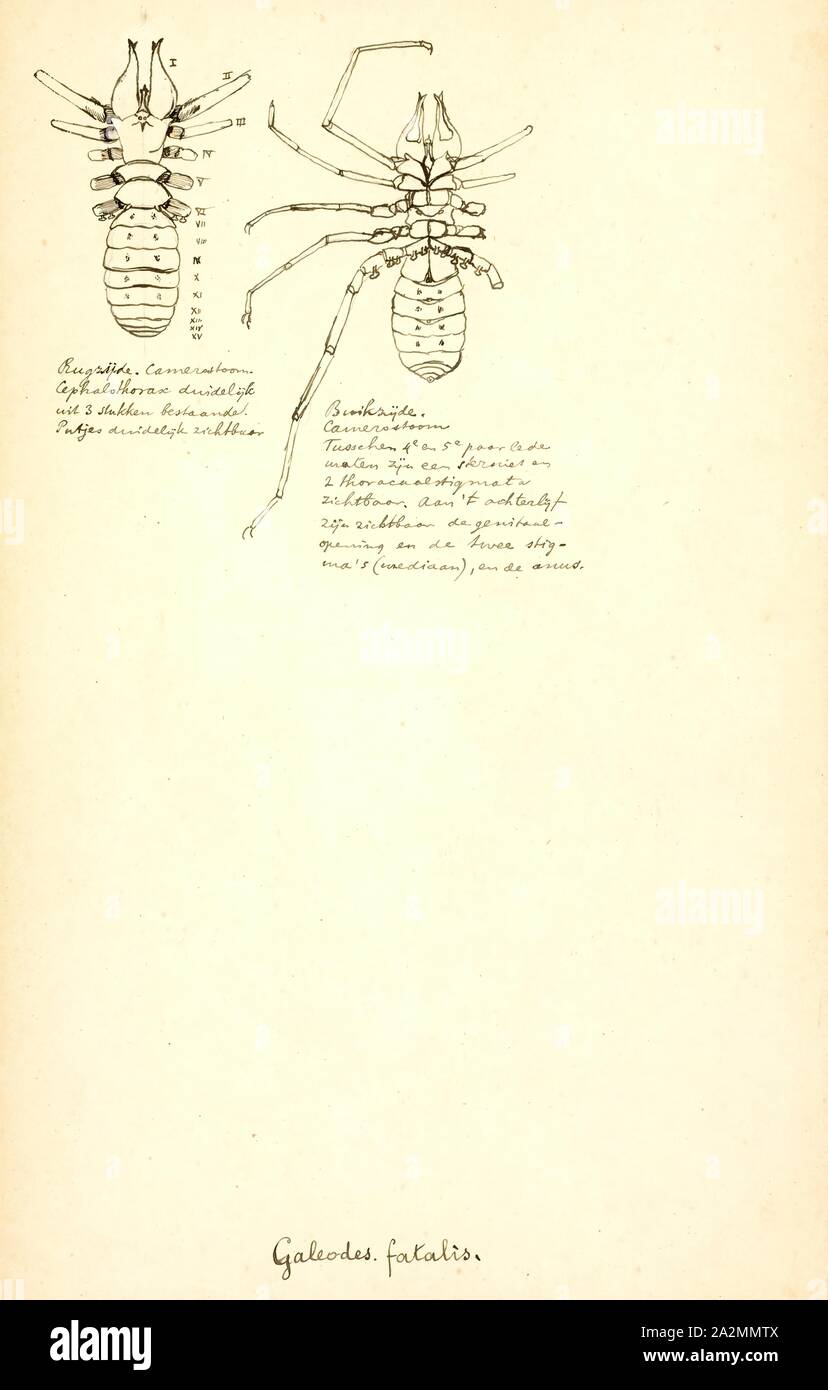 I
II
III
IV
V
VI
VII
VIII
IX
X
XI
XII
XIII
XIV
XV
Rugzijde. Camerostoom.
Cephalothorax duidelijk
uit 3 stukken bestaande.
Putjes duidelijk zichtbaar
Buikzijde.
Camerostoom
Tusschen 4e en 5e paar lede
maten zijn een en
2 thoracaalstigmata
zichtbaar. Aan 't achterlijf
zijn zichtbaar de genitaal-
opening en de twee stig-
ma's (mediaan), en de anus.
Galeodes. fatalis.
alamy
alamy
alamy
alamy
Image ID: A2MMTX
www.alamy.com